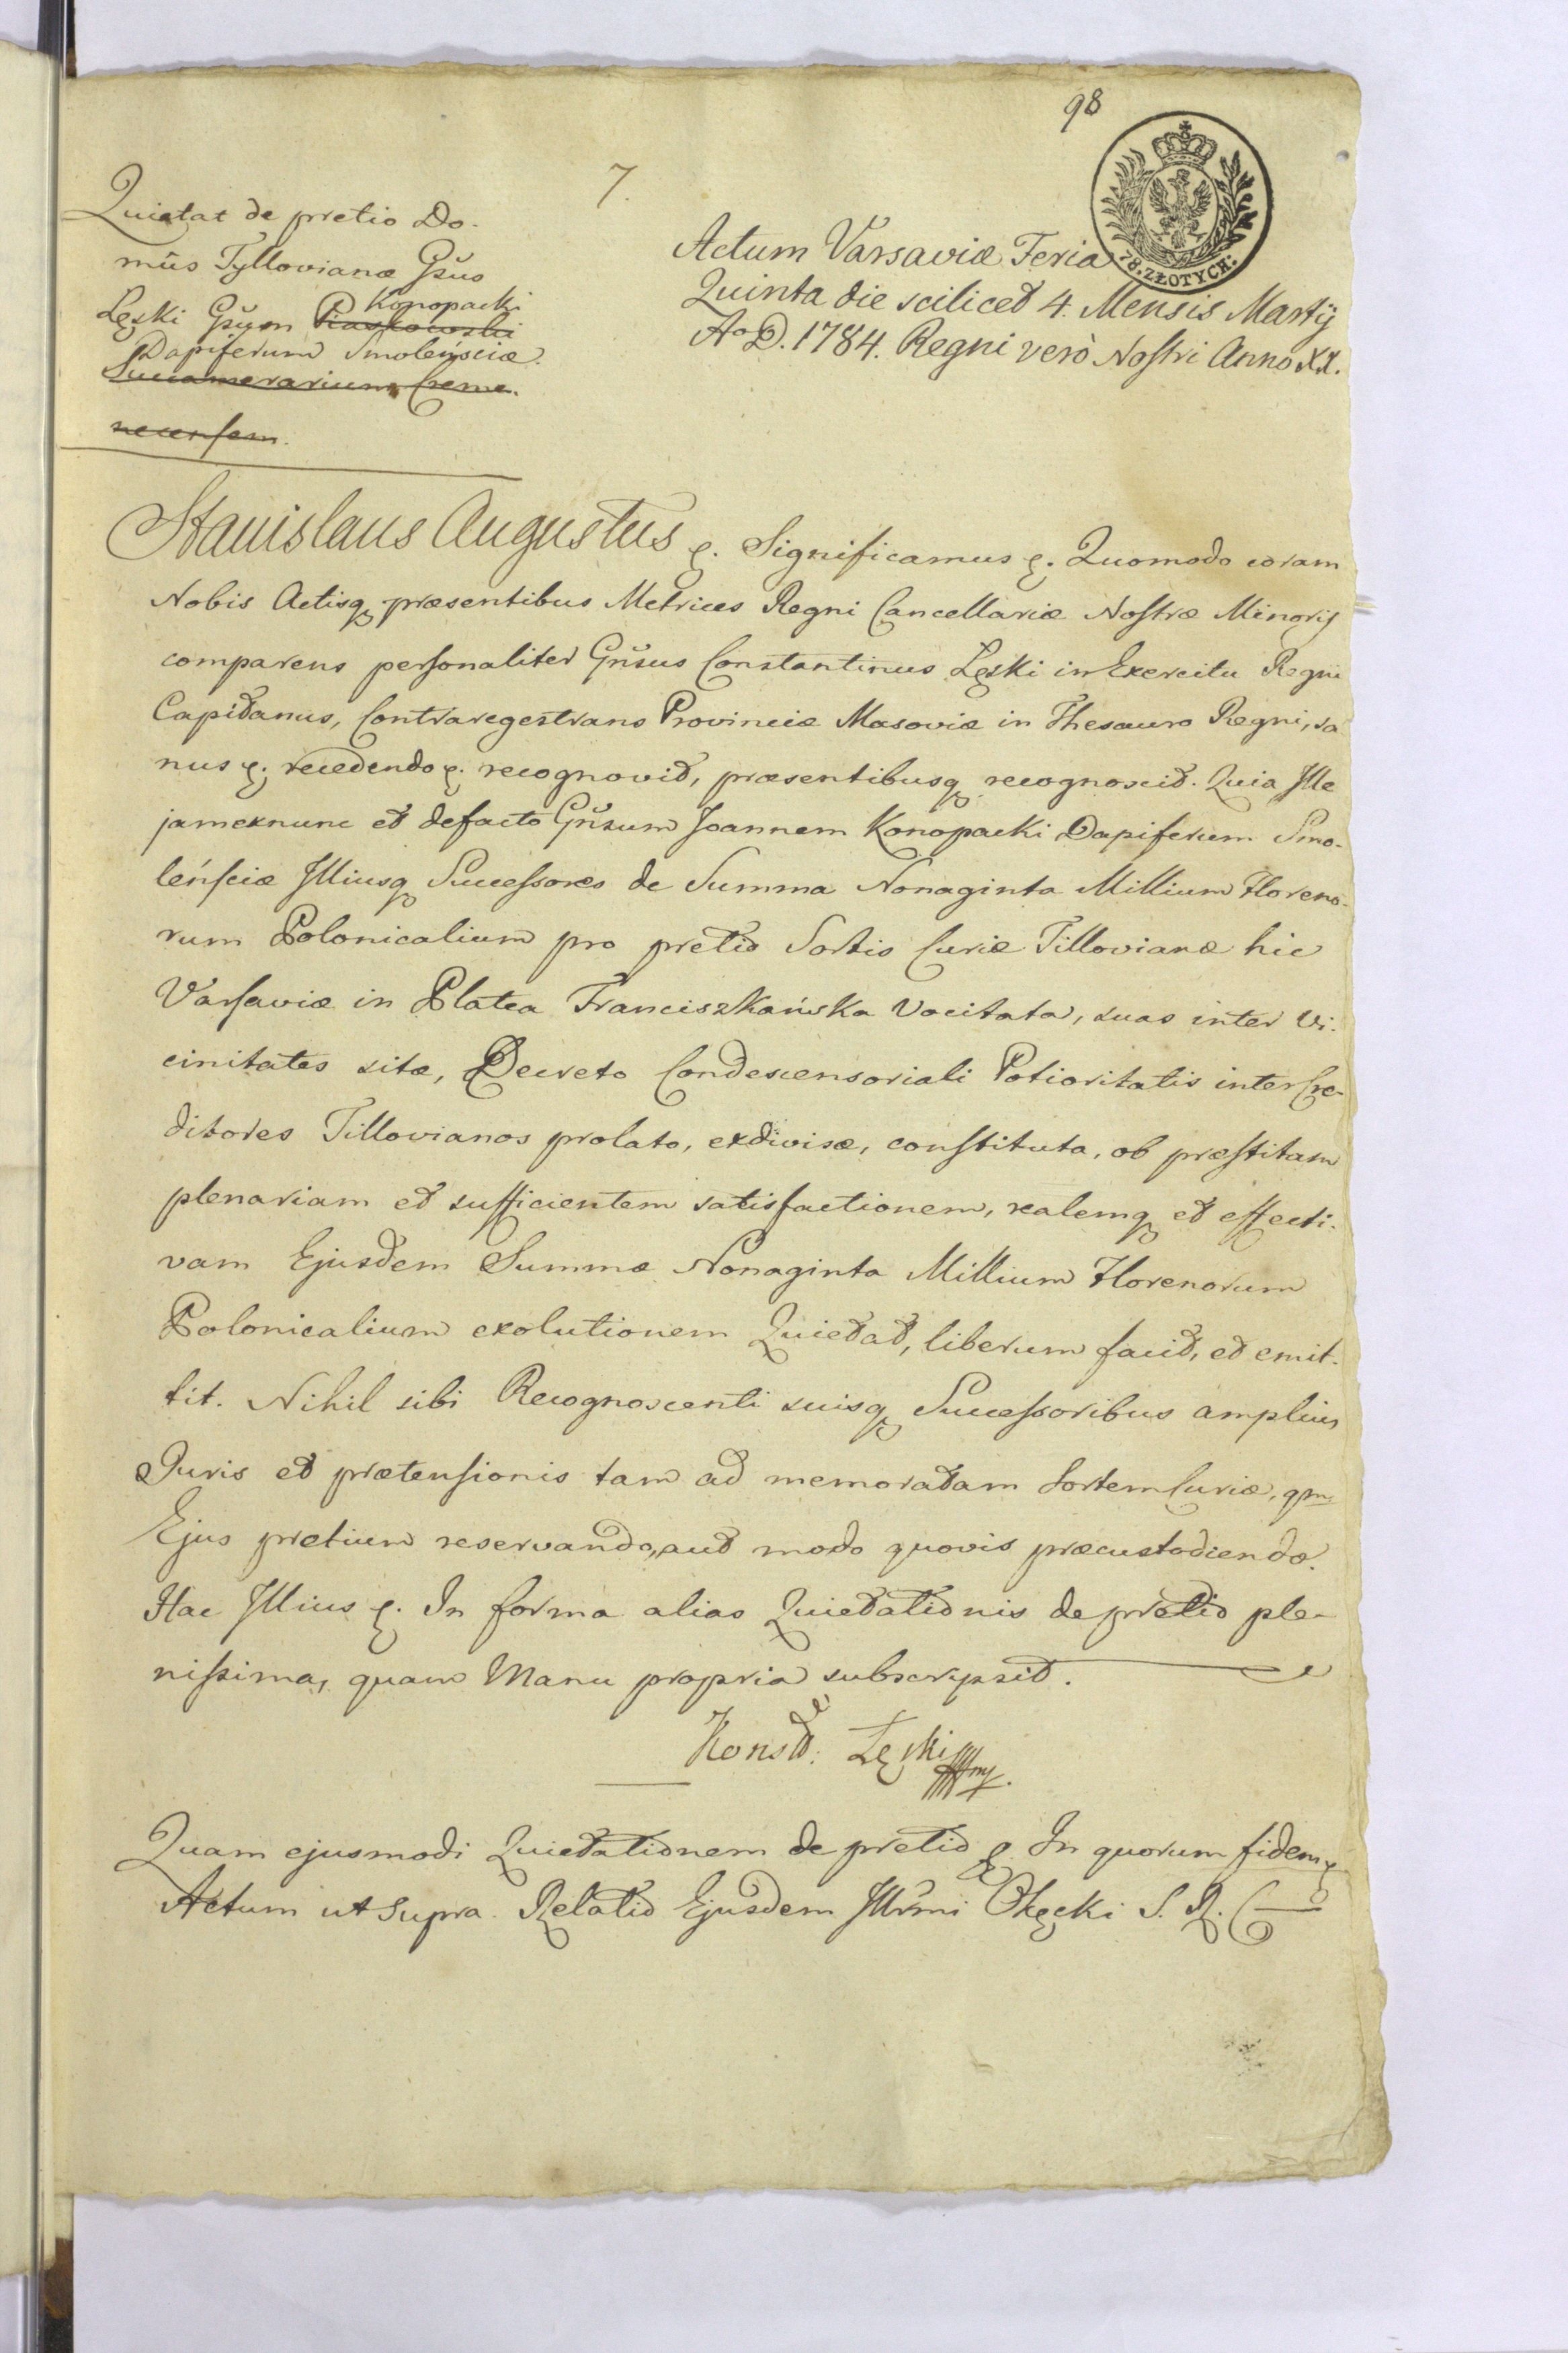 98
7.
Quietat de pretio Do-
mûs Tylloviana Gsus
Konopacki
Łęski Gsum Piaskowski
Dapiferum Smolénsciæ.
Succamerarium Creme-
necensem.
Actum Varsaviæ Feria
Quinta die scilicet 4. Mensis Martij
Ao D. 1784. Regni verò Nostri Anno XX.
78. ZŁOTYCH.
Stanislaus Augustus &. Significamus &. Quomodo coram
Nobis Actisq præsentibus Metrices Regni Cancellariæ Nostræ Minoris
comparens personaliter Gnsus Constantinus Łęski in Exercitu Regni
Capitanus, Contraregestrans Provinciæ Masoviæ in Thesauro Regni, sa
nus &. recedendo &. recognovit, præsentibusq recognoscit. Quia Ille
jamexnunc et defacto Gnsum Joannem Konopacki Dapiferum Smo-
lénsciæ Illiusq Successores de Summa Nonaginta Millium Floreno-
rum Polonicalium pro pretio Sortis Curiæ Tillovianæ hic
Varsaviæ in Platea Franciszkańska vocitata, suas inter vi-
cinitates sitæ, Decreto Condescensoriali Potioritatis inter Cre-
ditores Tillovianos prolato, exdivisæ, constituta, ob præstitam
plenariam et sufficientem satisfactionem, realemq et effecti-
vam Ejusdem Summæ Nonaginta Millium Florenorum
Polonicalium exolutionem Quietat, liberum facit, et emit-
tit. Nihil sibi Recognoscenti suisq Successoribus amplius
Juris et prætensionis tam ad memoratam Sortem Curiæ, qm
Ejus pretium reservando, aut modo quovis præcustodiendo.
Hac Illius &. In forma alias Quietationis de pretio ple-
nissima, quam Manu propria subscripsit.
Konst: Łęski mp.
Quam ejusmodi Quietationem de pretio &. In quorum fidem &
Actum ut supra. Relatio Ejusdem Illrmi Okęcki S. R. C